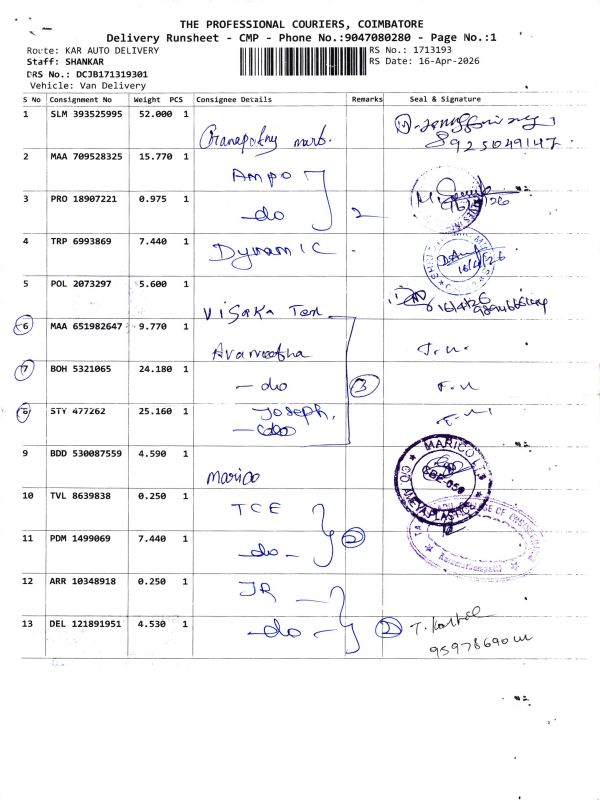 THE PROFESSIONAL COURIERS, COIMBATORE
Delivery Runsheet - CMP - Phone No.:9047080280 - Page No.:1
Route: KAR AUTO DELIVERY
RS No.: 1713193
Staff: SHANKAR
RS Date: 16-Apr-2026
DRS No.: DCJB171319301
Vehicle: Van Delivery
S No Consignment No Weight PCS Consignee Details Remarks Seal & Signature
1 SLM 393525995 52.000 1
8925049147
2 MAA 709528325 15.770 1 Ampo
3 PRO 18907221 0.975 1 -do 2
4 TRP 6993869 7.440 1 Dynamic
16/4/26
5 POL 2073297 5.600 1 Visaka Tex
16/4/26
6 MAA 651982647 9.770 1
7 BOH 5321065 24.180 1 -do 3
8 STY 477262 25.160 1 Joseph,
9 BDD 530087559 4.590 1 Marico
MARICO LTD
10 TVL 8639838 0.250 1 TCE
11 PDM 1499069 7.440 1 -do- 2
12 ARR 10348918 0.250 1 JR
13 DEL 121891951 4.530 1 -do- 2